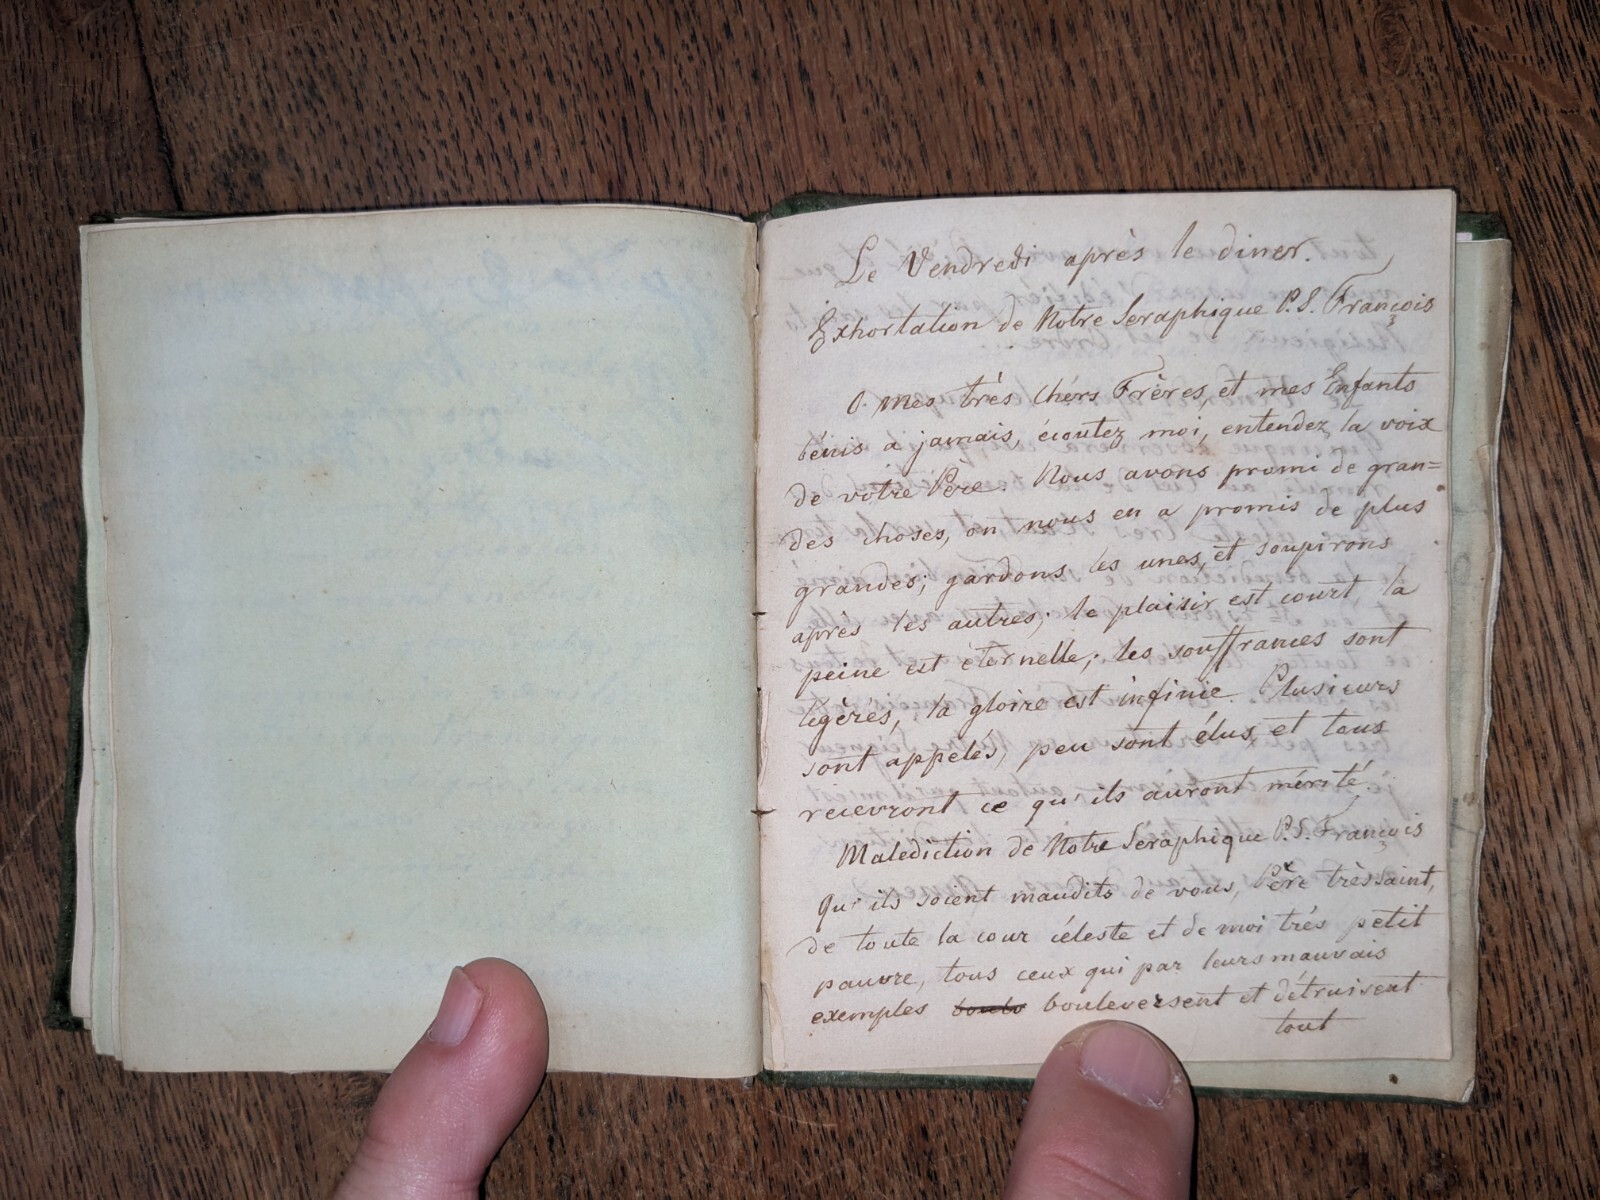 Le Vendredi après le diner.
Exhortation de Notre Seraphique P. S. François
O. mes très chérs Frères, et mes Enfants
bénis a jamais, écoutez moi, entendez la voix
de votre Père. Nous avons promi de gran=
des choses, on nous en a promis de plus
grandes; gardons les unes, et soupirons
après les autres; le plaisir est court, la
peine est éternelle; les souffrances sont
légères, la gloire est infinie. Plusieurs
sont appelés, peu sont élus, et tous
recevront ce qu'ils auront mérité.
Malediction de Notre Séraphique P. S. François
Qu'ils soient maudits de vous, Père très saint,
de toute la cour céleste et de moi trés petit
pauvre, tous ceux qui par leurs mauvais
exemples bouleversent et détruisent
tout